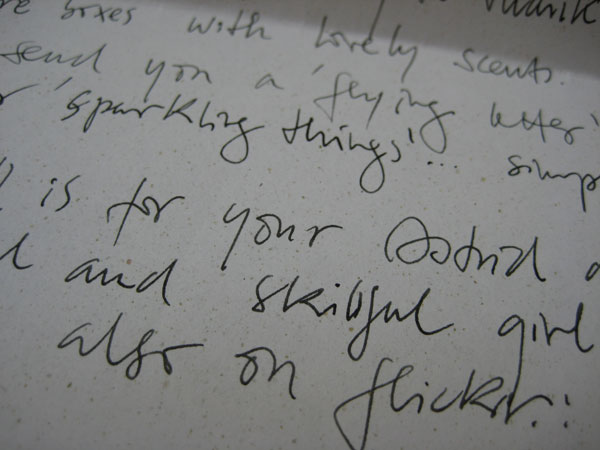 boxes with lovely scents.
send you a 'flying letter'
'sparkling things'... simp
is for your Astrid
and skillful girl
also on flickr!